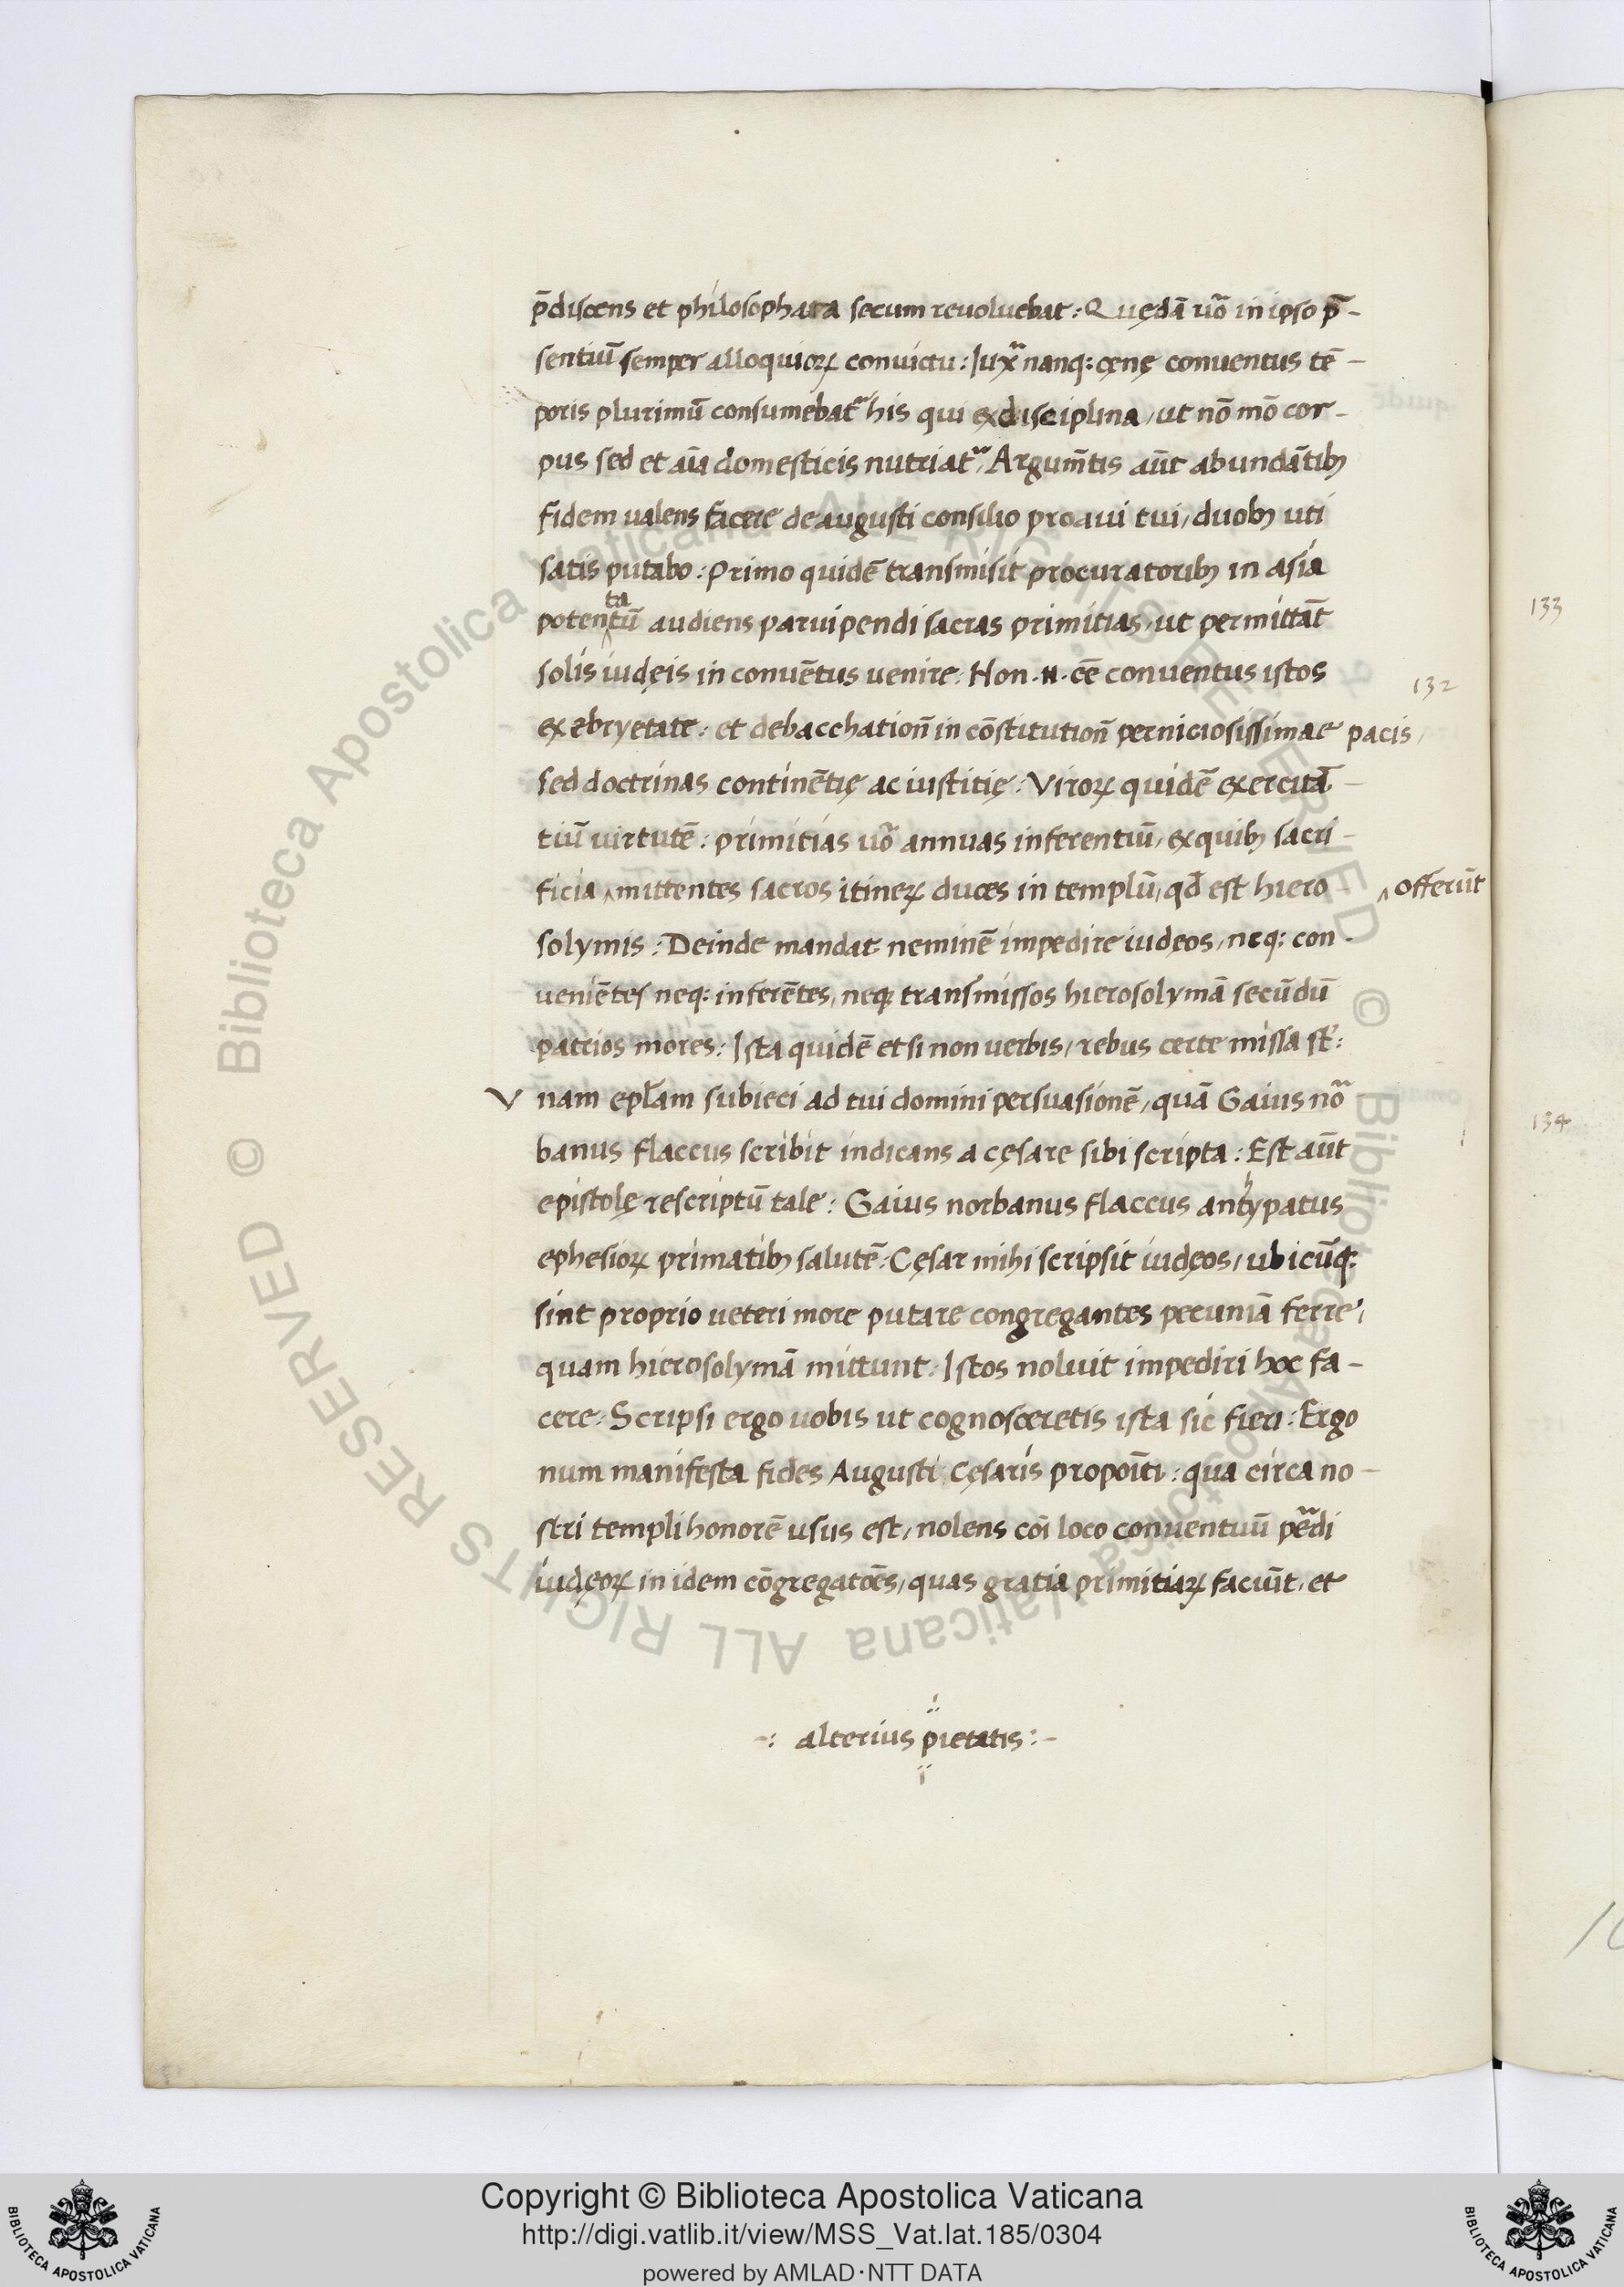 p̄discens et philosophata secum revoluebat: Quędā uõ in ipso p̃-
sentiū semper alloquioꝝ convictu: Iuxᵃ nanq: cęnę conuentus tē-
poris plurimū consumebat᷑ his qui ex disciplina, ut nō mō cor-
pus sed et aīa domesticis nutriat᷑, Argum̄tis aūt abundātibꝫ
fidem ualens facere de augusti consilio proaui tui, duobꝫ uti
satis putabo: Primo quidē transmisit procuratoribꝫ in asia
ta
potentū audiens paruipendi sacras primitias, ut permittāt
solis iudęis in conuētus uenire: Non .n. eē conuentus istos
132
ex ebryetate: et debacchation̄ in cōstitution̄ perniciosissimae pacis,
sed doctrinas continētię ac iustitię: Viroꝝ quidē exercitā-
tiū uirtutē: primitias uõ annuas inferentiū, ex quibꝫ sacri-
ficia ‸ mittentes sacros itineꝝ duces in templū, qđ est hiero- ‸ offerūt
solymis: Deinde mandat neminē impedire iudęos, neq: con-
ueniētes neq: inferētes, neq transmissos hierosolymā secūdū
patrios mores: Ista quidē etsi non uerbis, rebus certe missa st̄:
V nam epl̄am subieci ad tui domini persuasionē, quā Gaius no᷑
banus flaccus scribit indicans a cęsare sibi scripta: Est aūt
epistolę rescriptū tale: Gaius norbanus flaccus anthypatus
ephesioꝝ primatibꝫ salutē: Cęsar mihi scripsit iudęos, ubicūq:
sint proprio ueteri more putare congregantes pecuniā ferre,
quam hierosolymā mittunt: Istos noluit impediri hoc fa-
cere: Scripsi ergo uobis ut cognosceretis ista sic fieri: Ergo
num manifesta fides Augusti Cęsaris propoīti: qua circa no-
stri templi honorē usus est, nolens cōi loco conuentuū p̃di
iudęoꝝ in idem cōgregatōēs, quas gratia primitiaꝝ faciūt, et
-: alterius pietatis:-
133
134
Copyright © Biblioteca Apostolica Vaticana
http://digi.vatlib.it/view/MSS_Vat.lat.185/0304
powered by AMLAD·NTT DATA
BIBLIOTECA APOSTOLICA VATICANA
BIBLIOTECA APOSTOLICA VATICANA
© Biblioteca Apostolica Vaticana ALL RIGHTS RESERVED © Biblioteca Apostolica Vaticana ALL RIGHTS RESERVED